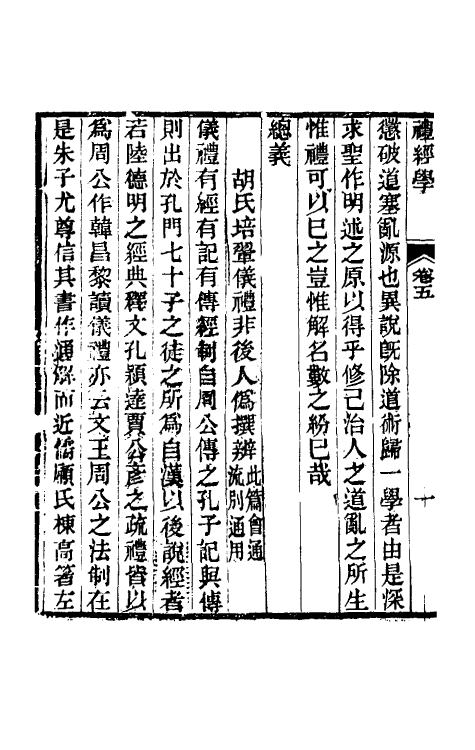 禮經學　卷五　十
懲破道塞亂源也異說既除道術歸一學者由是深
求聖作明述之原以得乎修己治人之道亂之所生
惟禮可以已之豈惟解名數之紛已哉
總義
胡氏培翬儀禮非後人僞撰辨此篇會通流別通用
儀禮有經有記有傳經制自周公傳之孔子記與傳
則出於孔門七十子之徒之所爲自漢以後說經者
若陸德明之經典釋文孔穎達賈公彥之疏禮皆以
爲周公作韓昌黎讀儀禮亦云文王周公之法制在
是朱子尤尊信其書作通解而近儒顧氏棟高著左